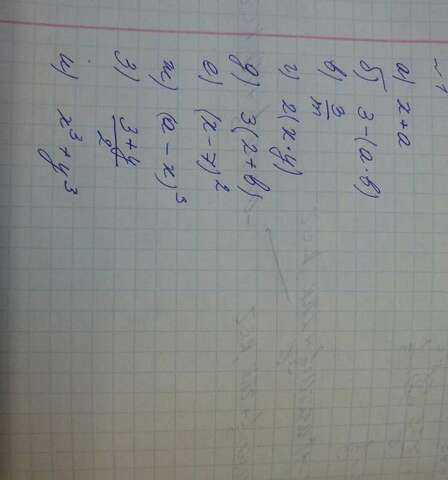 ~ 1
а) x+a
б) 3-(a·b)
в) 3/m
г) 2(x·y)
д) 3(2+b)
е) (x-7)²
ж) (a-x)³
з) 3+y/2
и) x³+y³